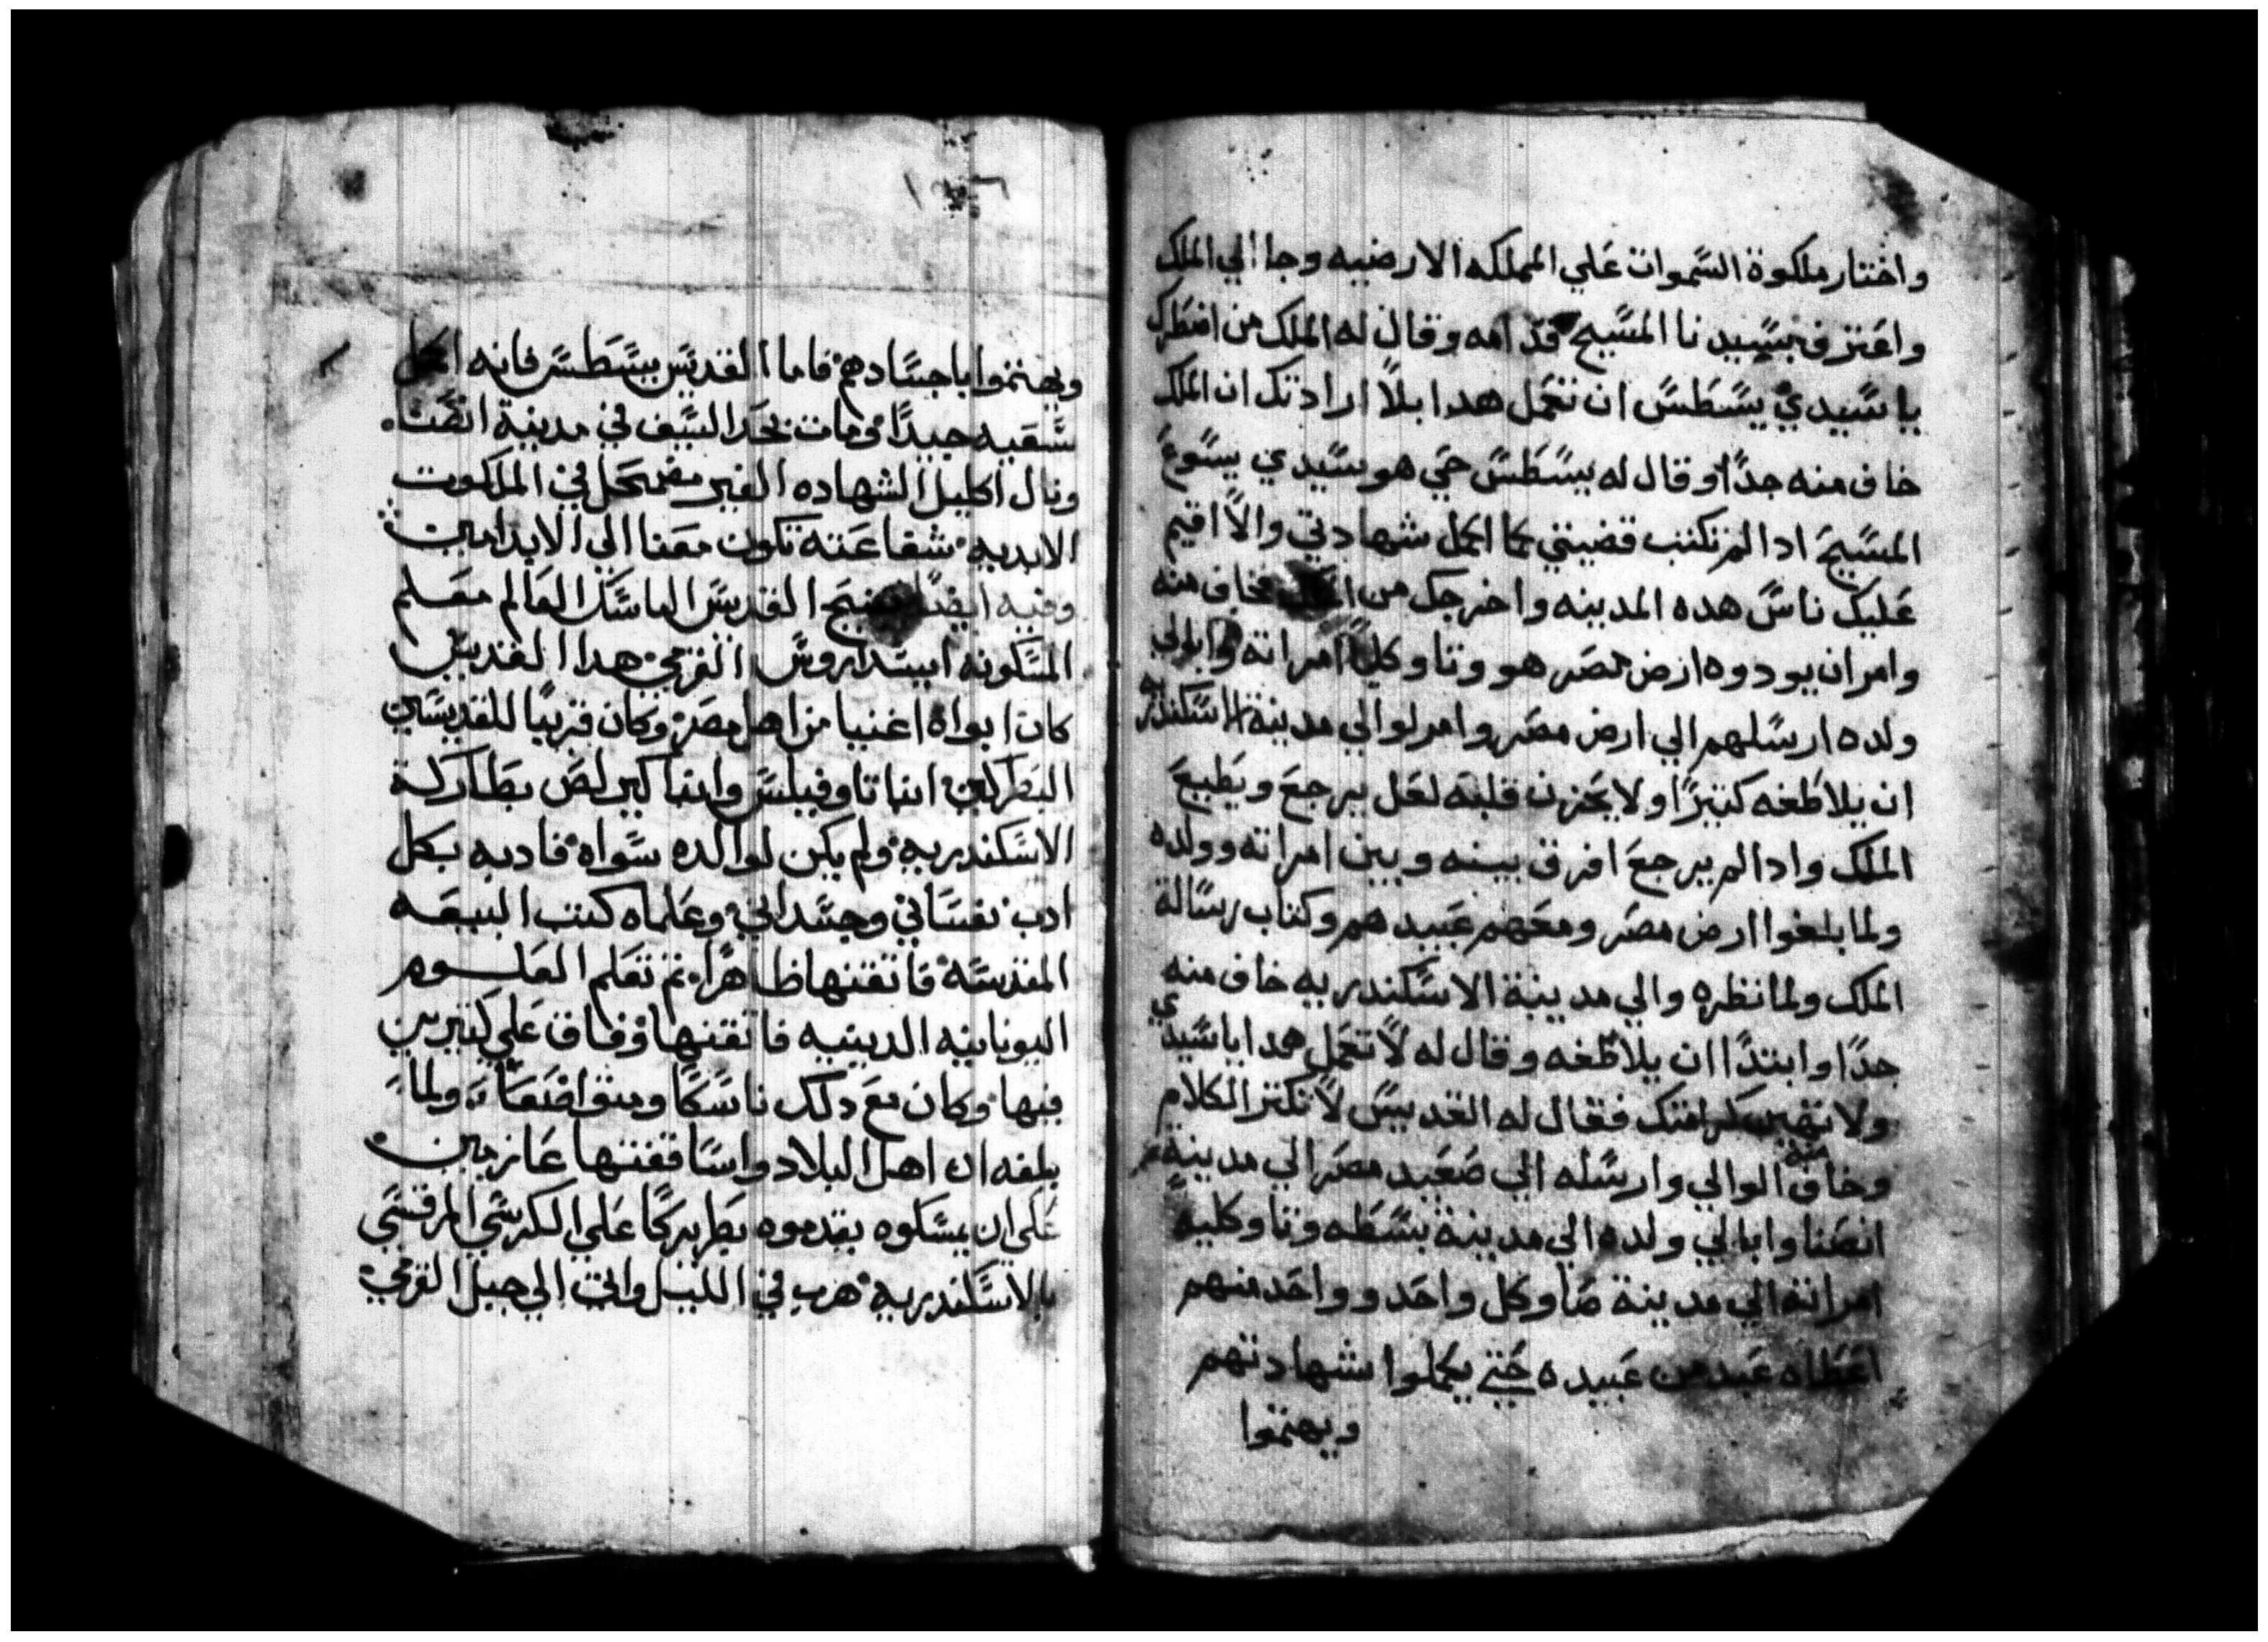 واختار ملكوة السموات علي المملكه الارضيه وجا الي الملك
واعترف بسيدنا المسيح قدامه وقال له الملك من اضطرك
ياسيدي يسطس ان تعمل هدا بلا ارادتك ان الملك
خاف منه جدا وقال له يسطس حي هو سيدي يسوع
المسيح ادا لم تكتب قضيتي كما اكمل شهادتي والا اقيم
عليك ناس هده المدينه واخرجك من فخاف منه
وامر ان يودوه ارض مصر هو وتاوكلا امراته وابالي
ولده ارسلهم الي ارض مصر وامر لوالي مدينة الاسكندريه
ان يلاطفه كتيرا ولا يحزن قلبه لعل يرجع ويطيع
الملك وادا لم يرجع افرق بينه وبين امراته وولده
ولما بلغوا ارض مصر ومعهم عبيدهم وكتاب رسالة
الملك ولما نظره والي مدينة الاسكندريه خاف منه
جدا وابتدا ان يلاطفه وقال له لا تعمل هدا ياسيدي
ولا تهين كرامتك فقال له القديس لا تكتر الكلام
وخاف منه الوالي وارسله الي صعيد مصر الي مدينة
انصنا وابالي ولده الي مدينة بسطه وتاوكليه
امراته الي مدينة صا وكل واحد وواحد منهم
اعطاه عبد من عبيده حتي يكملوا شهادتهم
ويهتموا
١٠٦
ويهتموا باجسادهم فاما القديس يسطس فانه اكمل
سعيه جيدا ومات بحد السيف في مدينة انصنا
ونال اكليل الشهاده الغير مضمحل في الملكوت
الابديه شفاعته تكون معنا الي الابد امين
وفيه ايضا تنيح القديس الناسك العالم معلم
المسكونه ابيسداروس الفرمي هدا القديس
كان ابواه اغنيا من اهل مصر وكان قريبا للقديسين
البطركين انبا تاوفيلس وانبا كيرلص بطاركة
الاسكندريه ولم يكن لوالده سواه فادبه بكل
ادب نفساني وجسداني وعلماه كتب البيعه
المقدسه فاتقنها ظاهرا تم تعلم العلوم
اليونانيه الدينيه فاتقنها وفاق علي كتيرين
فيها وكان مع دلك ناسكا ومتواضعا ولما
بلغه ان اهل البلاد واساقفتها عازمين
علي ان يمسكوه يقدموه بطريركا علي الكرسي المرقسي
بالاسكندريه هرب في الليل واتي الي جبل الفرمي